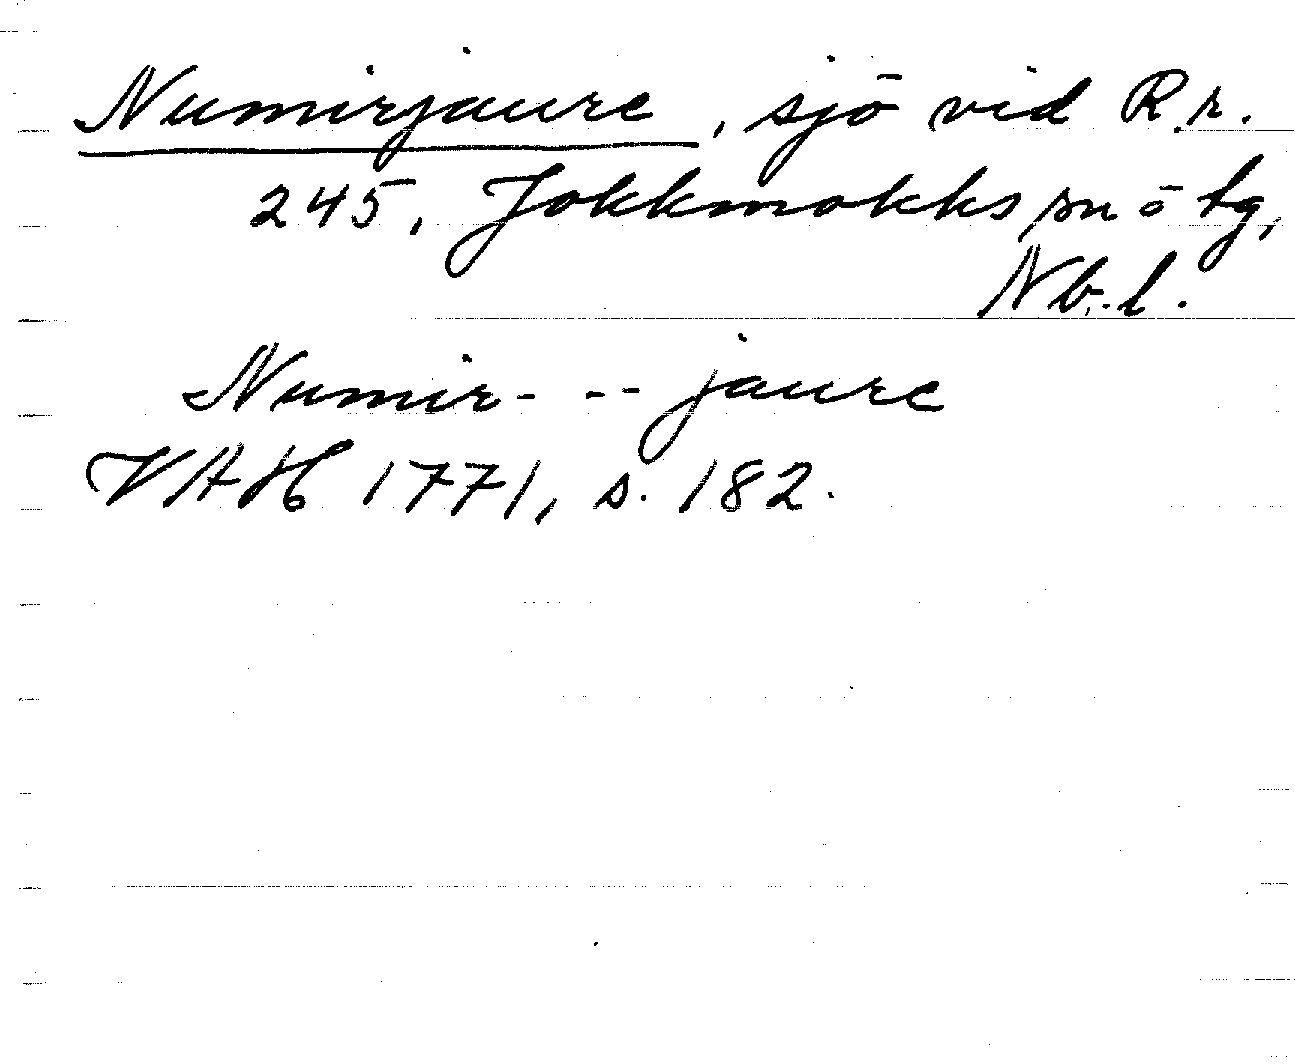 Numirjaure, sjö vid R.r.
245, Jokkmokks sn ō tg,
Nb.l.
Numir- -- jaure
VAH 1771, s. 182.